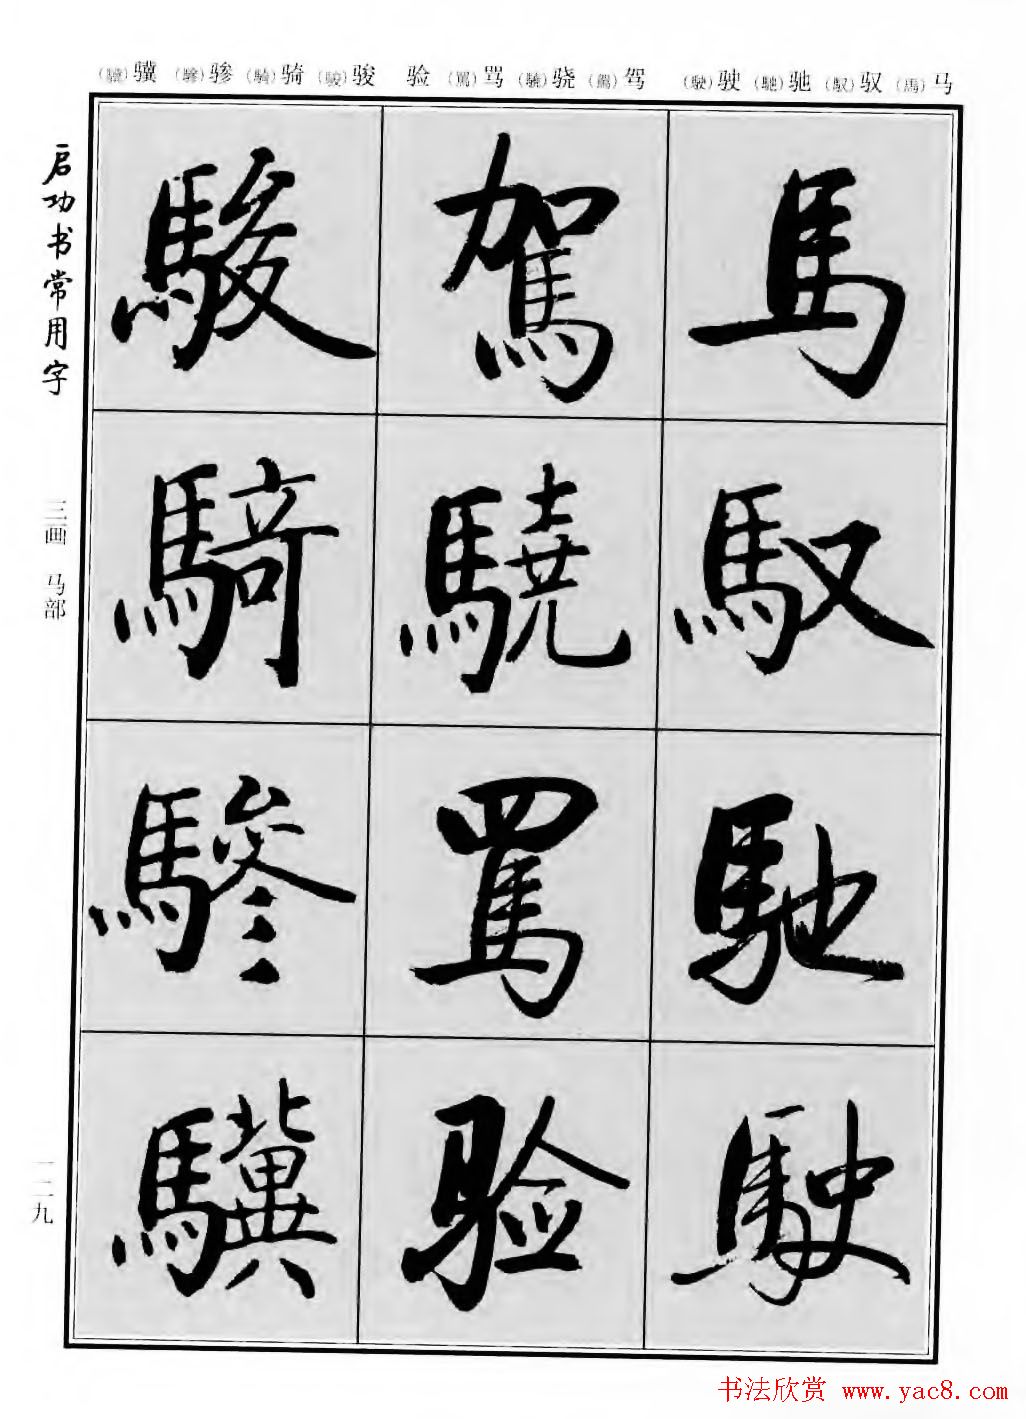 马（馬） 驭（馭） 驰（馳） 驶（駛） 驾（駕） 骁（驍） 骂（駡） 验 骏（駿） 骑（騎） 骖（驂） 骥（驥）
启功书常用字
三画 马部
一二九
馬
馭
馳
駛
駕
驍
罵
验
駿
騎
驂
驥
书法欣赏 www.yac8.com